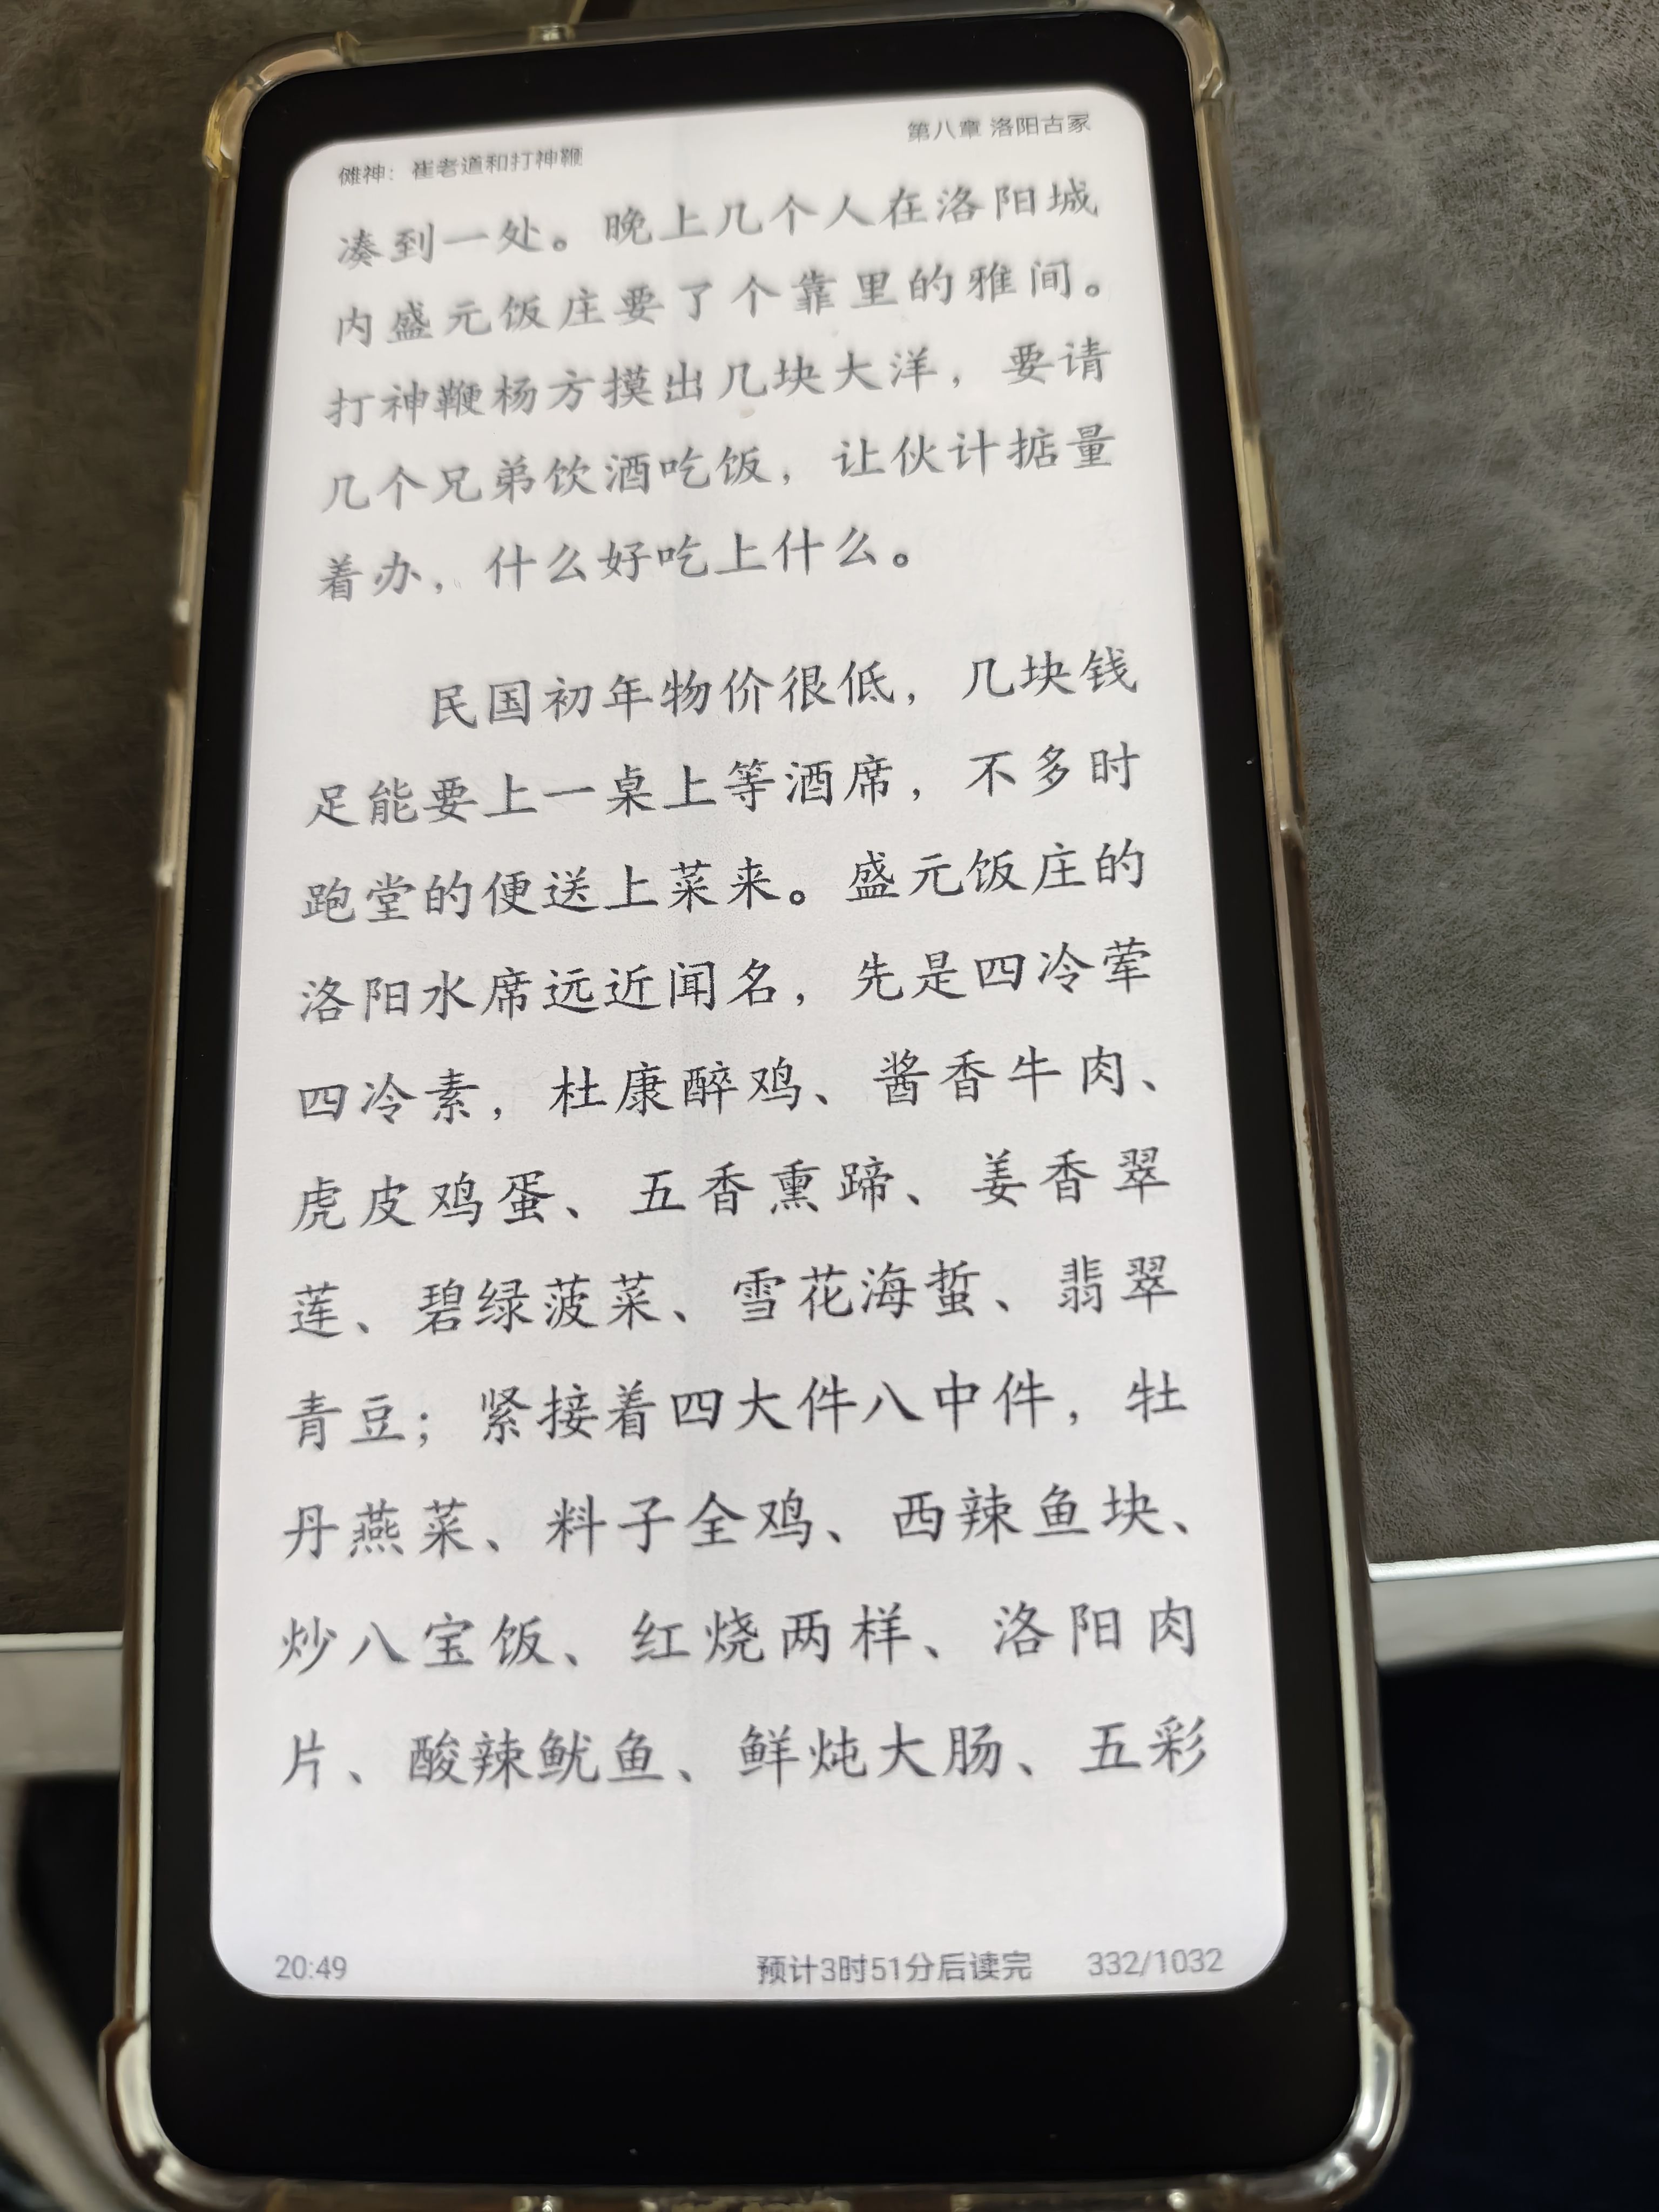 傩神：崔老道和打神鞭
第八章 洛阳古冢
凑到一处。晚上几个人在洛阳城
内盛元饭庄要了个靠里的雅间。
打神鞭杨方摸出几块大洋，要请
几个兄弟饮酒吃饭，让伙计掂量
着办，什么好吃上什么。
民国初年物价很低，几块钱
足能要上一桌上等酒席，不多时
跑堂的便送上菜来。盛元饭庄的
洛阳水席远近闻名，先是四冷荤
四冷素，杜康醉鸡、酱香牛肉、
虎皮鸡蛋、五香熏蹄、姜香翠
莲、碧绿菠菜、雪花海蜇、翡翠
青豆；紧接着四大件八中件，牡
丹燕菜、料子全鸡、西辣鱼块、
炒八宝饭、红烧两样、洛阳肉
片、酸辣鱿鱼、鲜炖大肠、五彩
20:49
预计3时51分后读完
332/1032